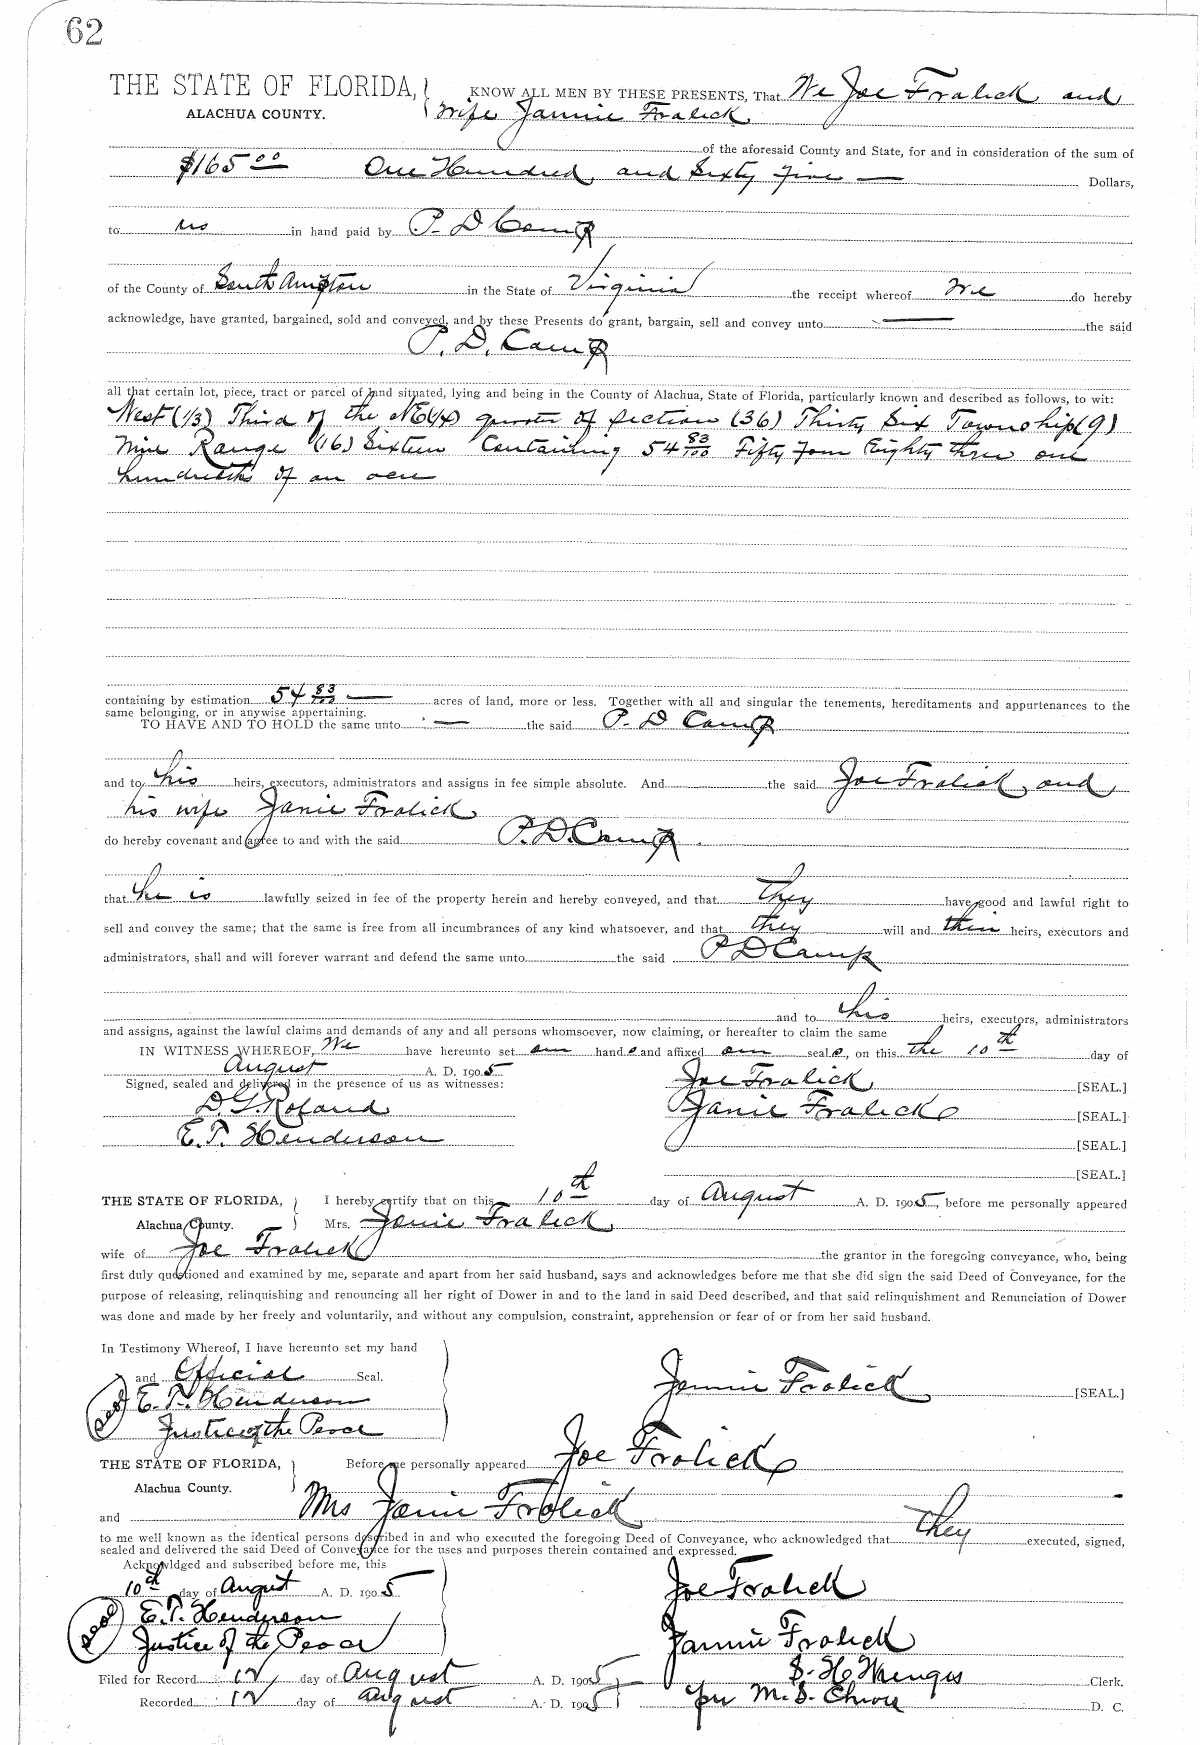 62
THE STATE OF FLORIDA, KNOW ALL MEN BY THESE PRESENTS, That We Joe Fralick and
ALACHUA COUNTY. wife Jannie Fralick
of the aforesaid County and State, for and in consideration of the sum of
$165 00 One Hundred and Sixty five — Dollars,
to us in hand paid by P. D Camp
of the County of South Ampton in the State of Virginia the receipt whereof we do hereby
acknowledge, have granted, bargained, sold and conveyed, and by these Presents do grant, bargain, sell and convey unto — the said
P. D. Camp
all that certain lot, piece, tract or parcel of land situated, lying and being in the County of Alachua, State of Florida, particularly known and described as follows, to wit:
West (1/3) Third of the NE(1/4) quarter of section (36) Thirty Six Township (9)
Nine Range (16) Sixteen Containing 54 83/100 Fifty four Eighty three one
hundredths of an acre
containing by estimation 54 83/100 — acres of land, more or less. Together with all and singular the tenements, hereditaments and appurtenances to the
same belonging, or in anywise appertaining.
TO HAVE AND TO HOLD the same unto — the said P. D Camp
and to his heirs, executors, administrators and assigns in fee simple absolute. And the said Joe Fralick and
his wife Janie Fralick
do hereby covenant and agree to and with the said P. D. Camp.
that he is lawfully seized in fee of the property herein and hereby conveyed, and that they have good and lawful right to
sell and convey the same; that the same is free from all incumbrances of any kind whatsoever, and that they will and their heirs, executors and
administrators, shall and will forever warrant and defend the same unto the said P D Camp
and to his heirs, executors, administrators
and assigns, against the lawful claims and demands of any and all persons whomsoever, now claiming, or hereafter to claim the same
IN WITNESS WHEREOF, We have hereunto set our hands and affixed our seals, on this the 10th day of
August A. D. 1905
Signed, sealed and delivered in the presence of us as witnesses: Joe Fralick [SEAL.]
D. G. Roland Janie Fralick [SEAL.]
E. P. Henderson [SEAL.]
[SEAL.]
THE STATE OF FLORIDA, I hereby certify that on this 10th day of August A. D. 1905, before me personally appeared
Alachua County. Mrs. Janie Fralick
wife of Joe Fralick the grantor in the foregoing conveyance, who, being
first duly questioned and examined by me, separate and apart from her said husband, says and acknowledges before me that she did sign the said Deed of Conveyance, for the
purpose of releasing, relinquishing and renouncing all her right of Dower in and to the land in said Deed described, and that said relinquishment and Renunciation of Dower
was done and made by her freely and voluntarily, and without any compulsion, constraint, apprehension or fear of or from her said husband.
In Testimony Whereof, I have hereunto set my hand
and Official Seal. Jannie Fralick [SEAL.]
Seal E. P. Henderson
Justice of the Peace
THE STATE OF FLORIDA, Before me personally appeared Joe Fralick
Alachua County.
and Mrs Janie Fralick
to me well known as the identical persons described in and who executed the foregoing Deed of Conveyance, who acknowledged that they executed, signed,
sealed and delivered the said Deed of Conveyance for the uses and purposes therein contained and expressed.
Acknowldged and subscribed before me, this
10th day of August A. D. 1905 Joe Fralick
Seal E. P. Henderson
Justice of the Peace Jannie Fralick
Filed for Record 12 day of August A. D. 1905 S. H. Wienges Clerk.
Recorded 12 day of August A. D. 1905 per M. S. D. C.